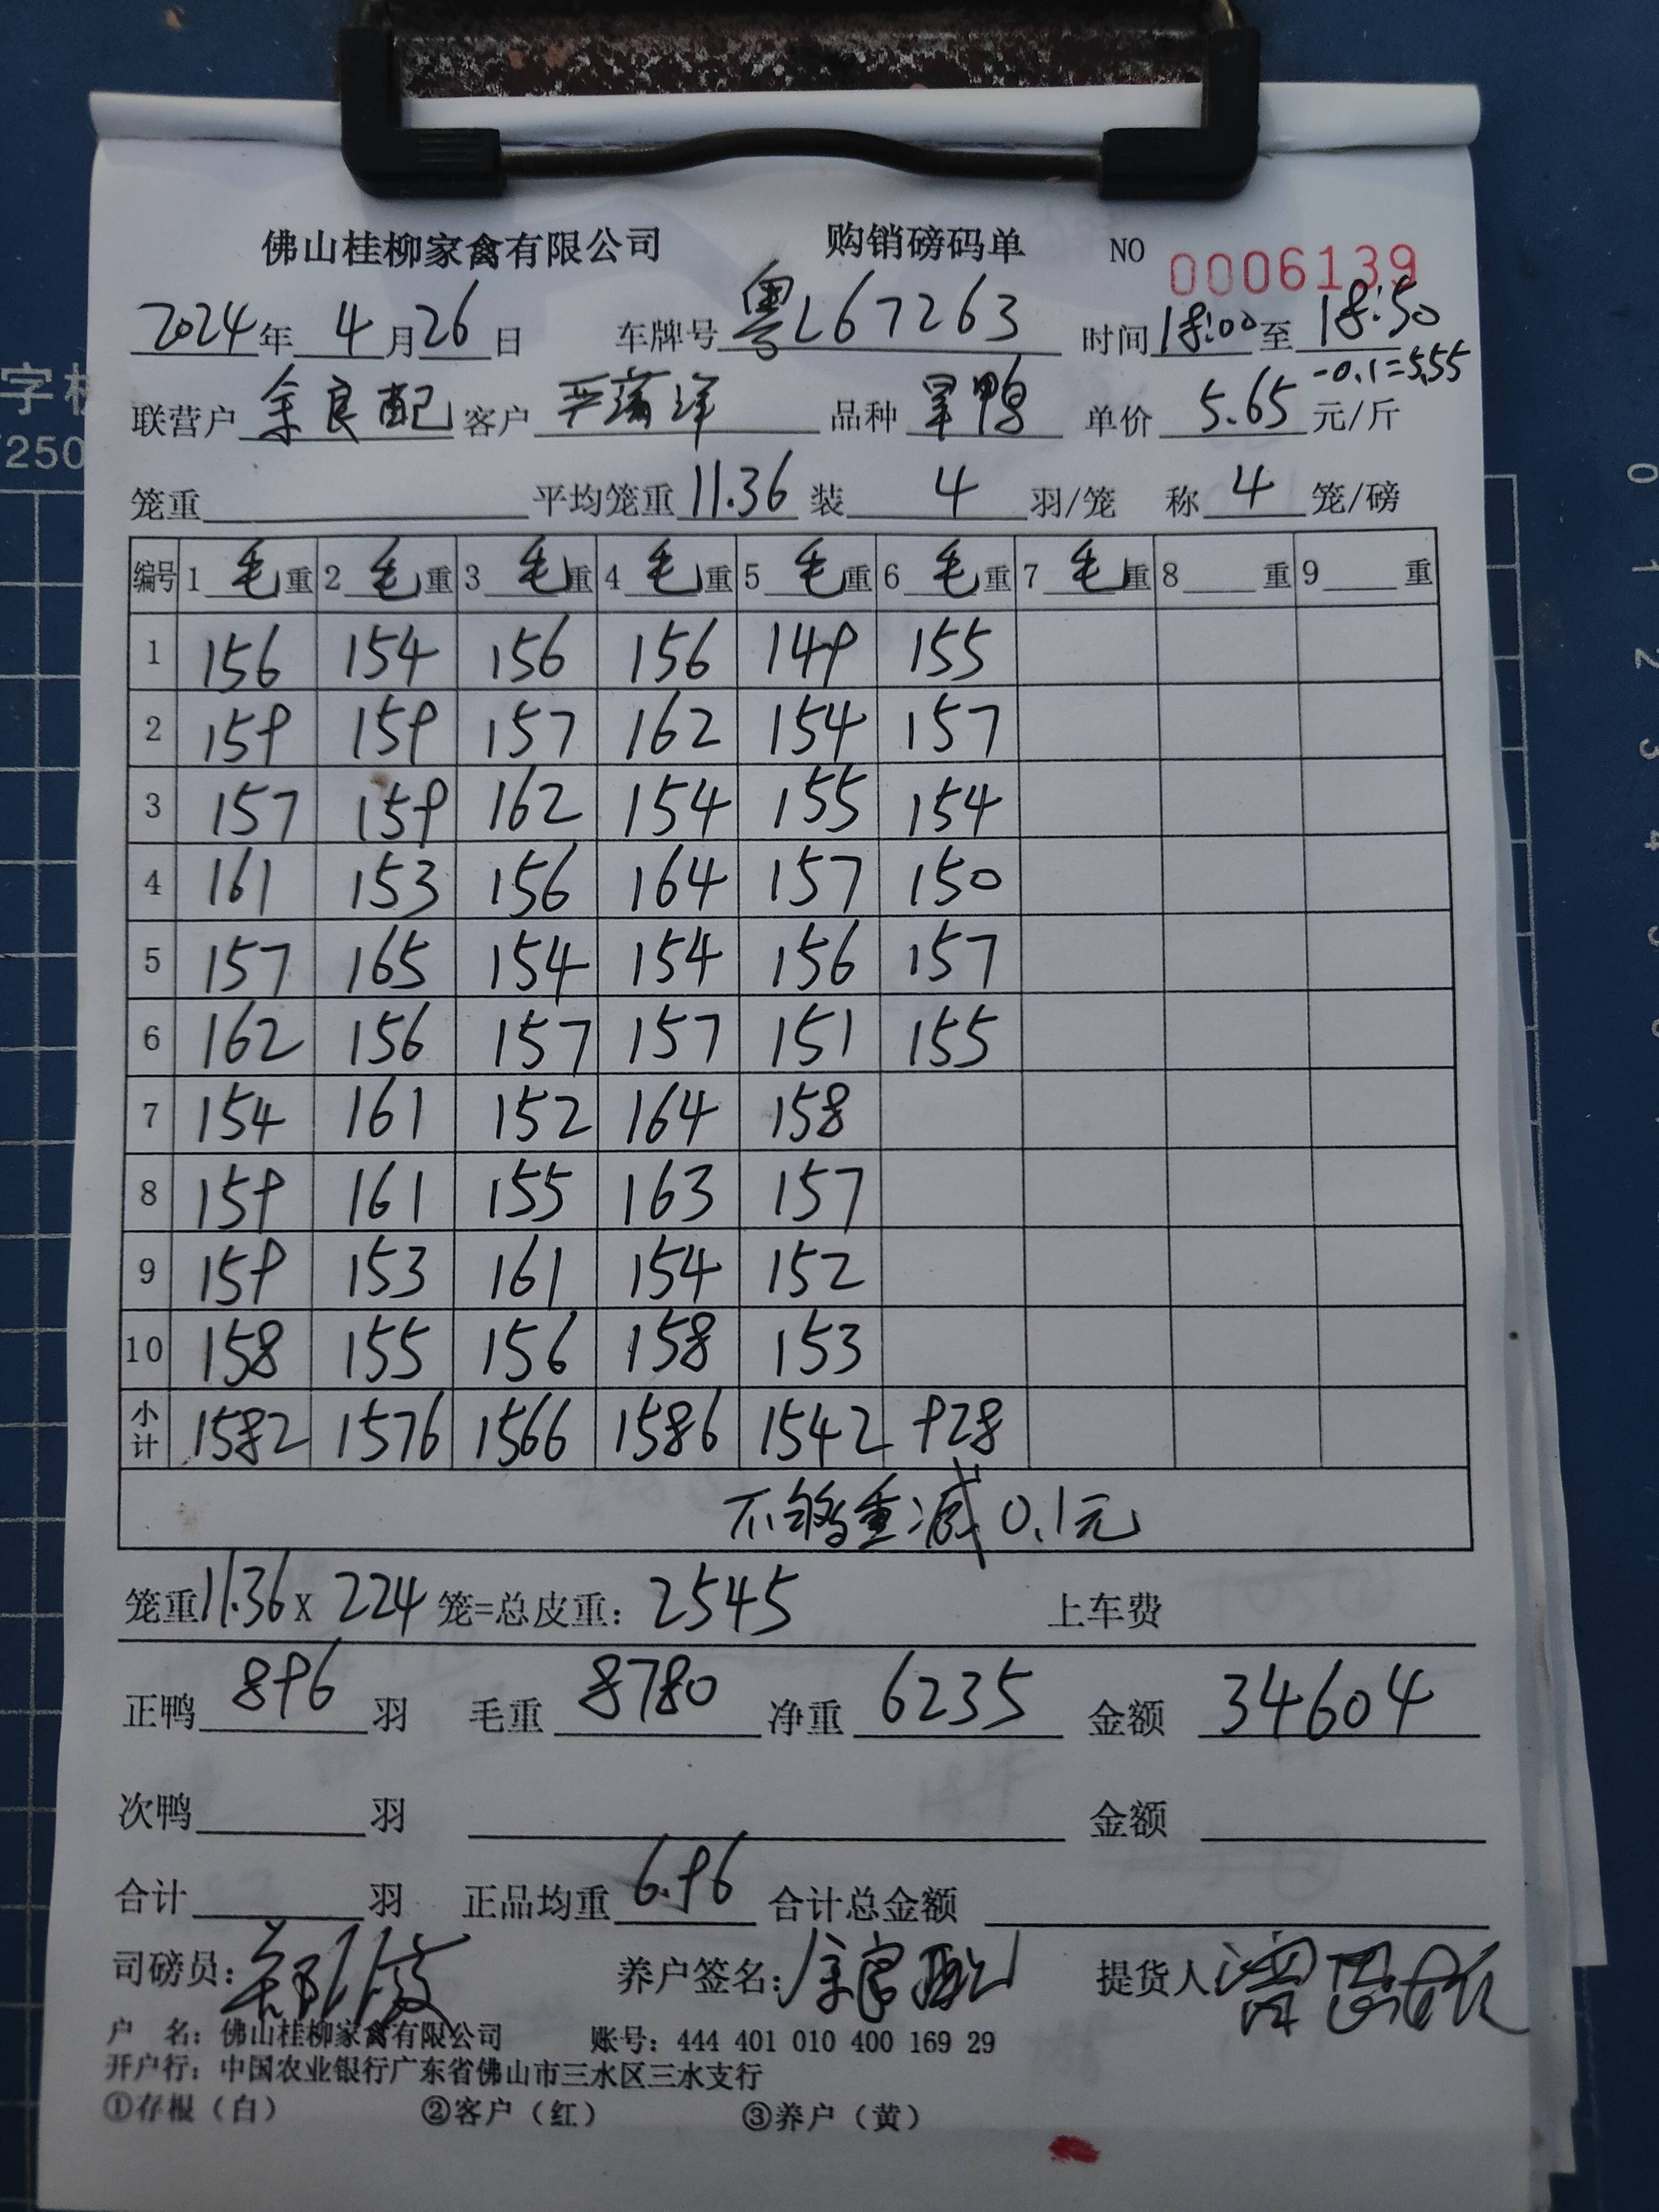 佛山桂柳家禽有限公司 购销磅码单 NO 0006139
2024年 4月26日 车牌号 粤L67263 时间18:00至18:50
-0.1=5.55
联营户 余良配 客户 品种 旱鸭 单价 5.65 元/斤
笼重 平均笼重 11.36 装 4 羽/笼 称 4 笼/磅
编号 1 毛 重 2 毛 重 3 毛 重 4 毛 重 5 毛 重 6 毛 重 7 毛 重 8 重 9 重
1 156 154 156 156 149 155
2 159 159 157 162 154 157
3 157 159 162 154 155 154
4 161 153 156 164 157 150
5 157 165 154 154 156 157
6 162 156 157 157 151 155
7 154 161 152 164 158
8 159 161 155 163 157
9 159 153 161 154 152
10 158 155 156 158 153
小计 1582 1576 1566 1586 1542 928
不够重减0.1元
笼重11.36 x 224 笼=总皮重: 2545 上车费
正鸭 896 羽 毛重 8780 净重 6235 金额 34604
次鸭 羽 金额
合计 羽 正品均重 6.96 合计总金额
司磅员: 养户签名: 提货人
户 名: 佛山桂柳家禽有限公司 账号: 444 401 010 400 169 29
开户行: 中国农业银行广东省佛山市三水区三水支行
①存根（白） ②客户（红） ③养户（黄）
字
250
0
1
2
3
4